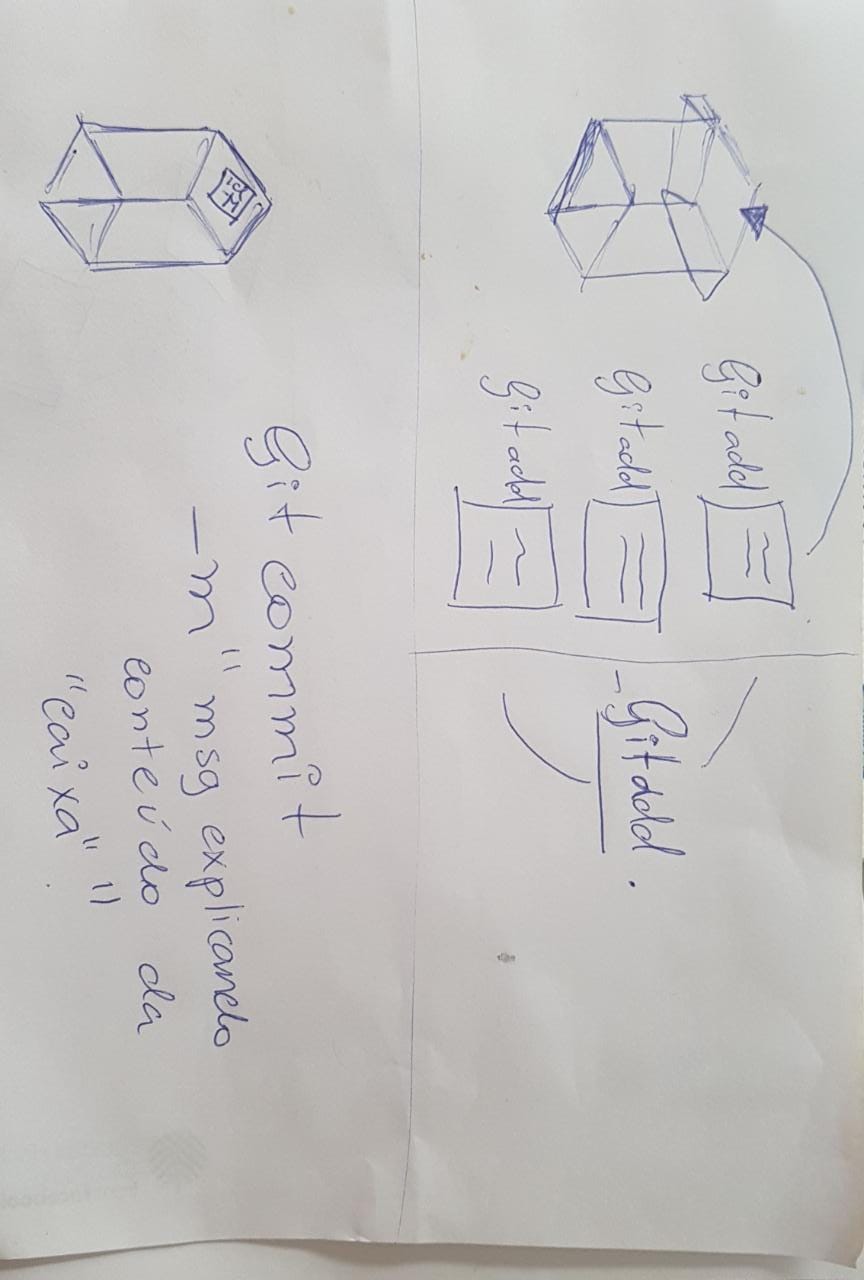 Git add
Git add
Git add
- Git add .
Git commit
-m " msg explicando
conteúdo da
"caixa" "